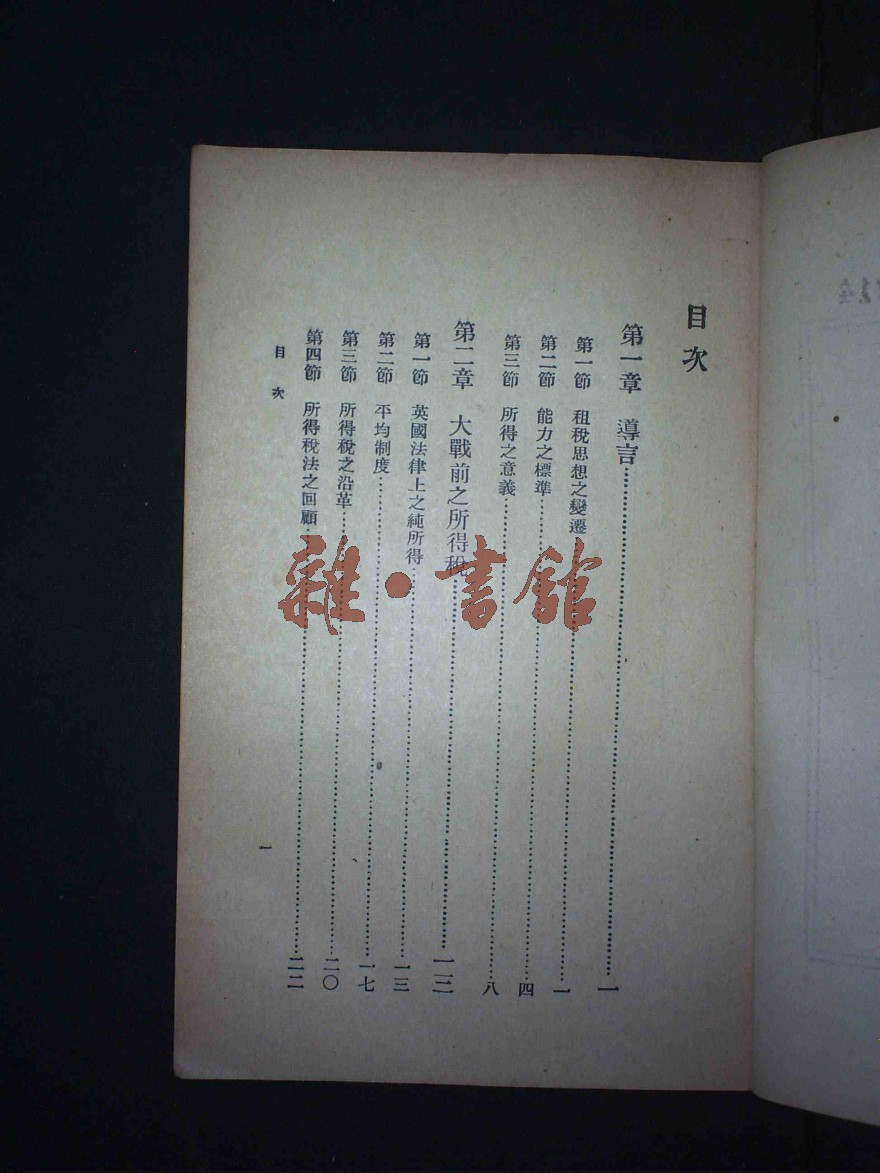 目次
第一章　導言…………一
第一節　租稅思想之變遷…………一
第二節　能力之標準…………四
第三節　所得之意義…………八
第二章　大戰前之所得稅…………一三
第一節　英國法律上之純所得…………一三
第二節　平均制度…………一七
第三節　所得稅之沿革…………二〇
第四節　所得稅法之回顧…………二二
目次
一
雜·書館